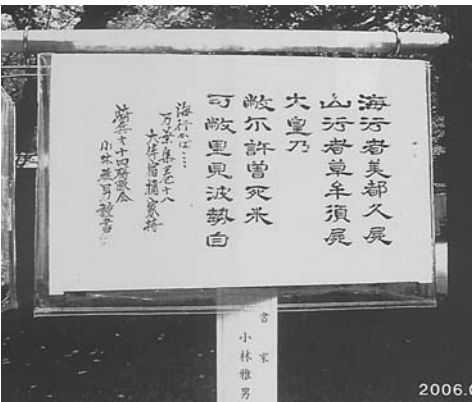 海行者美都久屍
山行者草牟須屍
大皇乃
敝尓許曽死米
可敝里見波勢自
海行かば……
万葉集巻十八
大伴宿祢家持
小林雅男謹書
書家
小林雅男
2006.0